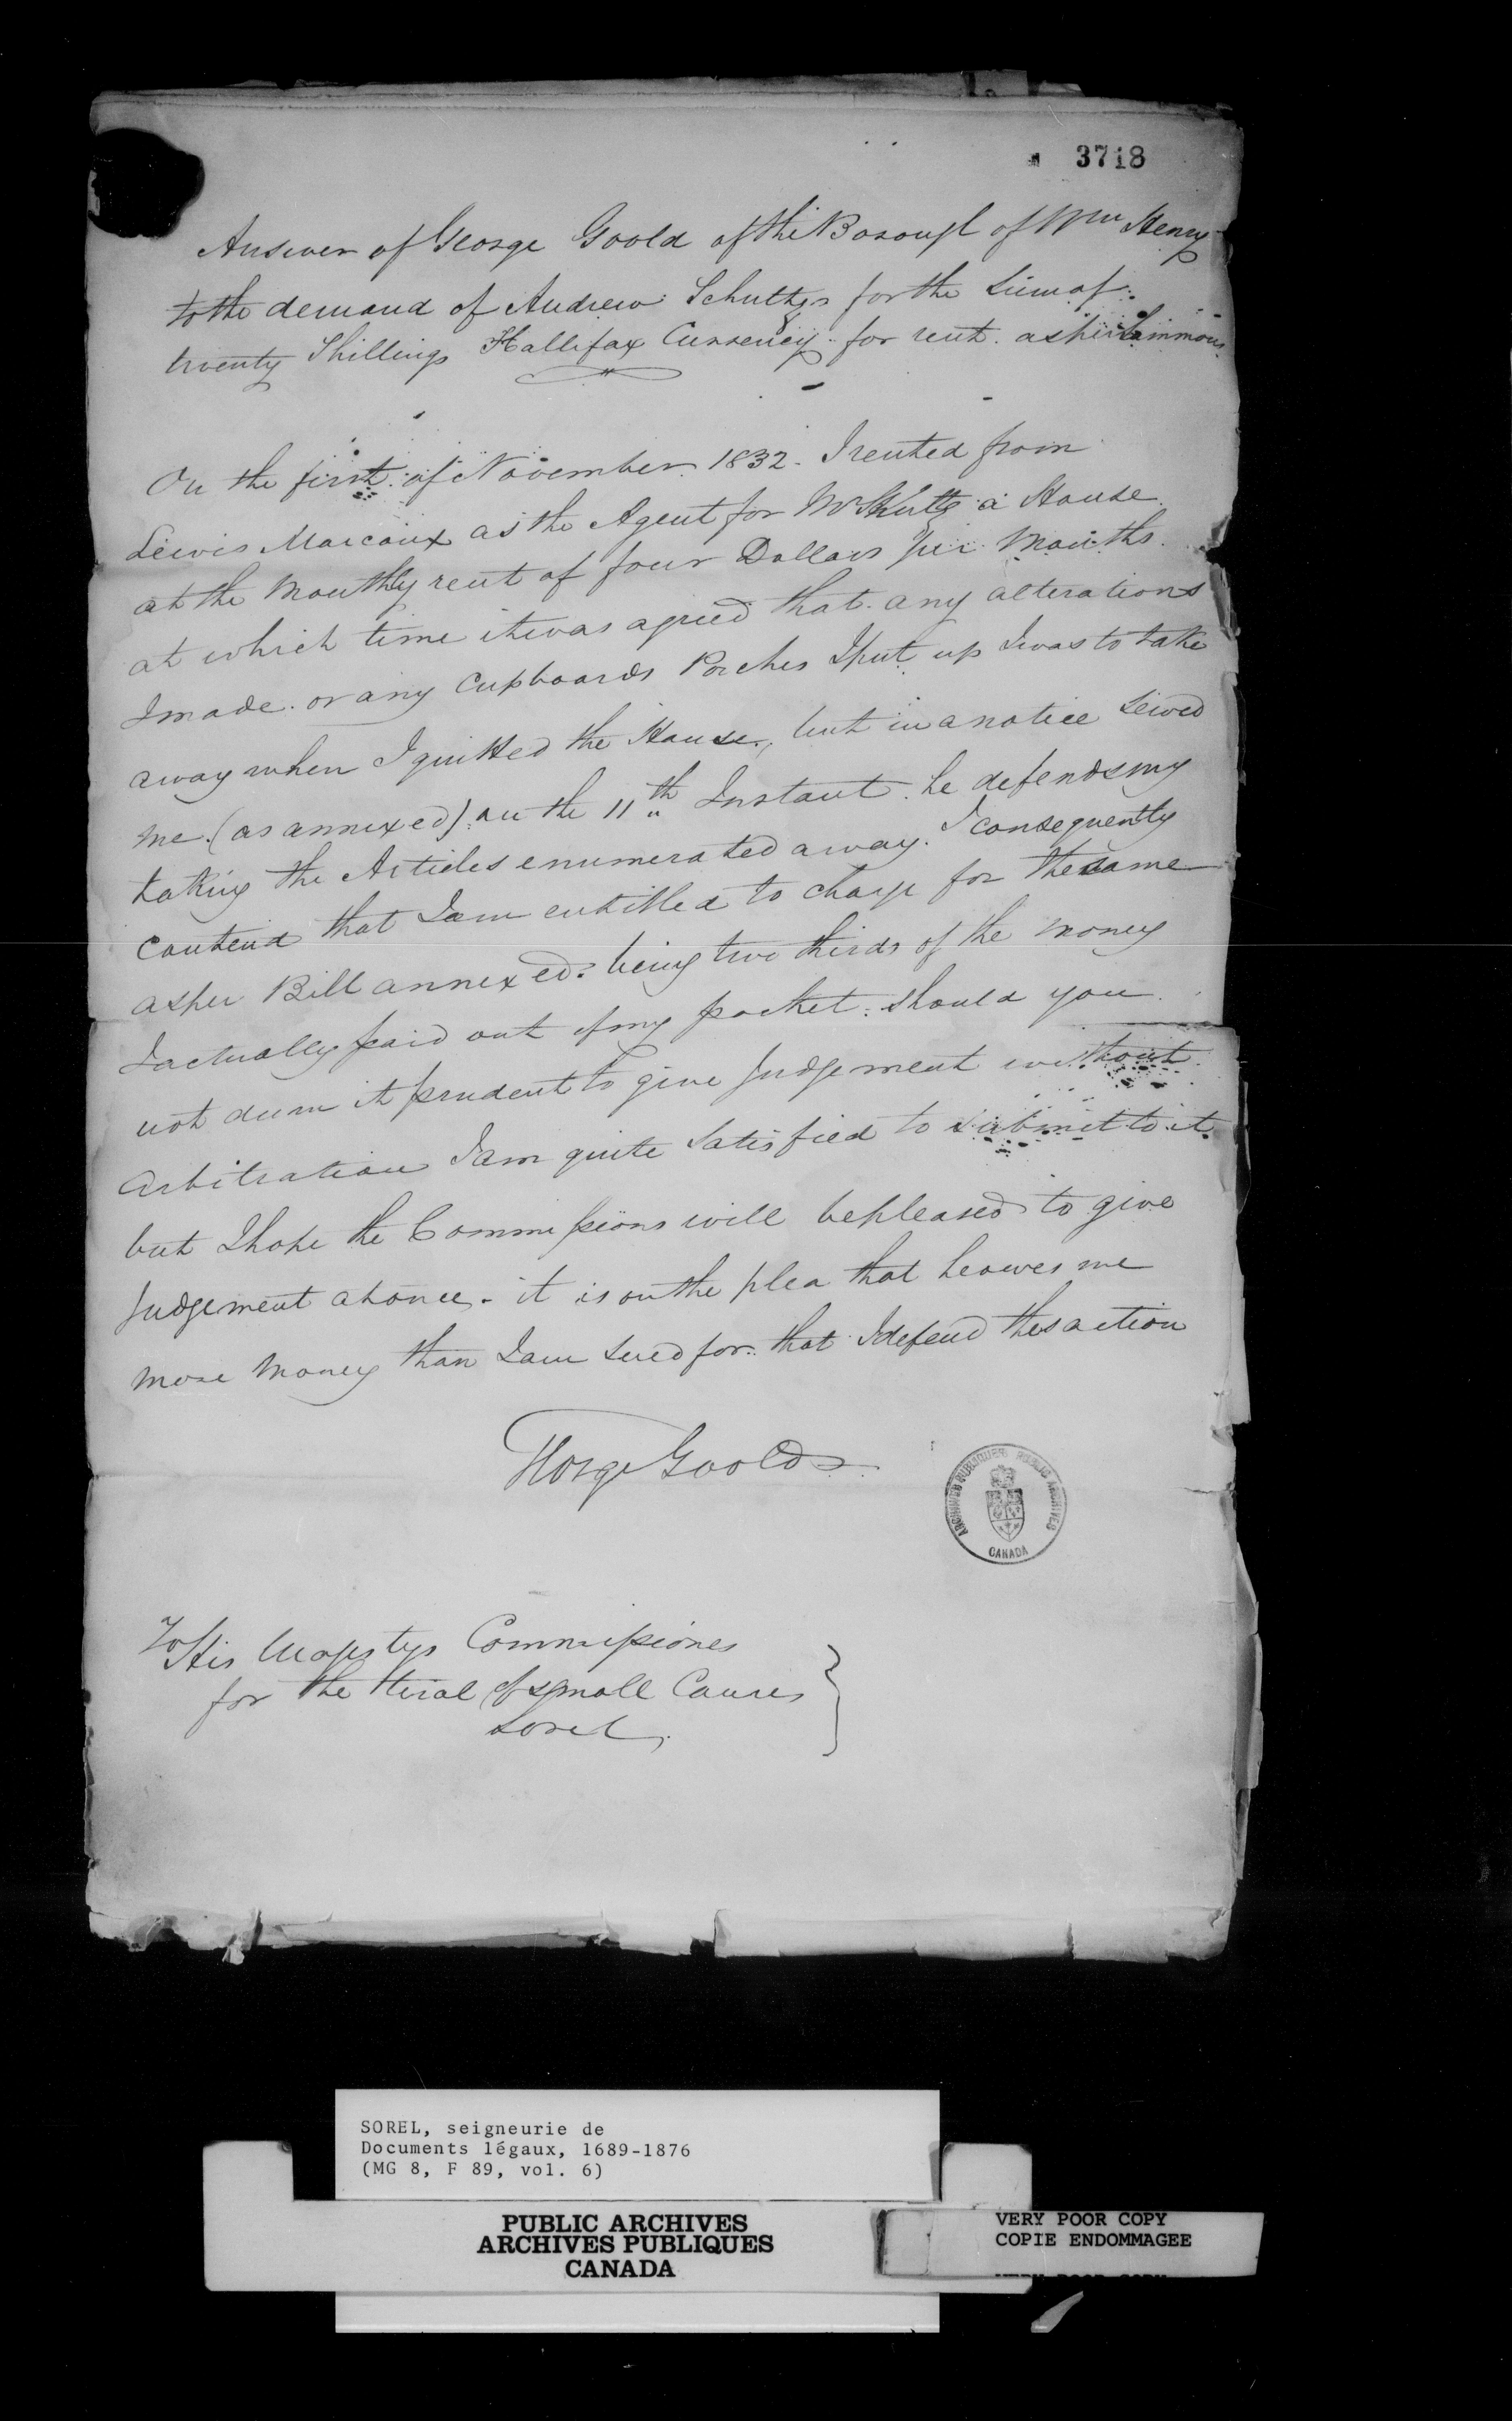 3718
Answer of George Goold of the Borough of Wm Henry
to the demand of Andrew Schultzs for the Sum of
twenty Shillings Hallifax Currency for rent. as per Summons
On the first of November 1832. I rented from
Lewis Marcoux as the Agent for Mr Shultz a House
at the Monthly rent of four Dollars per Months.
at which time it was agreed that any alterations
I made. or any Cupboards Porches I put up I was to take
away when I quitted the House, but in a notice Served
me. (as annexed) on the 11th Instant. he defends my
taking the Articles enumerated away. I consequently
contend that I am entitled to charge for the same
as per Bill annexed. being two thirds of the Money
I actually paid out of my pocket. should you
not deem it prudent to give Judgement without
Arbitration I am quite Satisfied to submit to it
but I hope the Commissions will be pleased to give
Judgement at once. it is on the plea that he owes me
more Money than I am Sued for. that I defend this action
George Goold
ARCHIVES PUBLIQUES PUBLIC ARCHIVES
CANADA
To His Majestys Commissiones
for the trial of small Causes
Sorel
SOREL, seigneurie de
Documents légaux, 1689-1876
(MG 8, F 89, vol. 6)
PUBLIC ARCHIVES
ARCHIVES PUBLIQUES
CANADA
VERY POOR COPY
COPIE ENDOMMAGEE
VERY POOR COPY